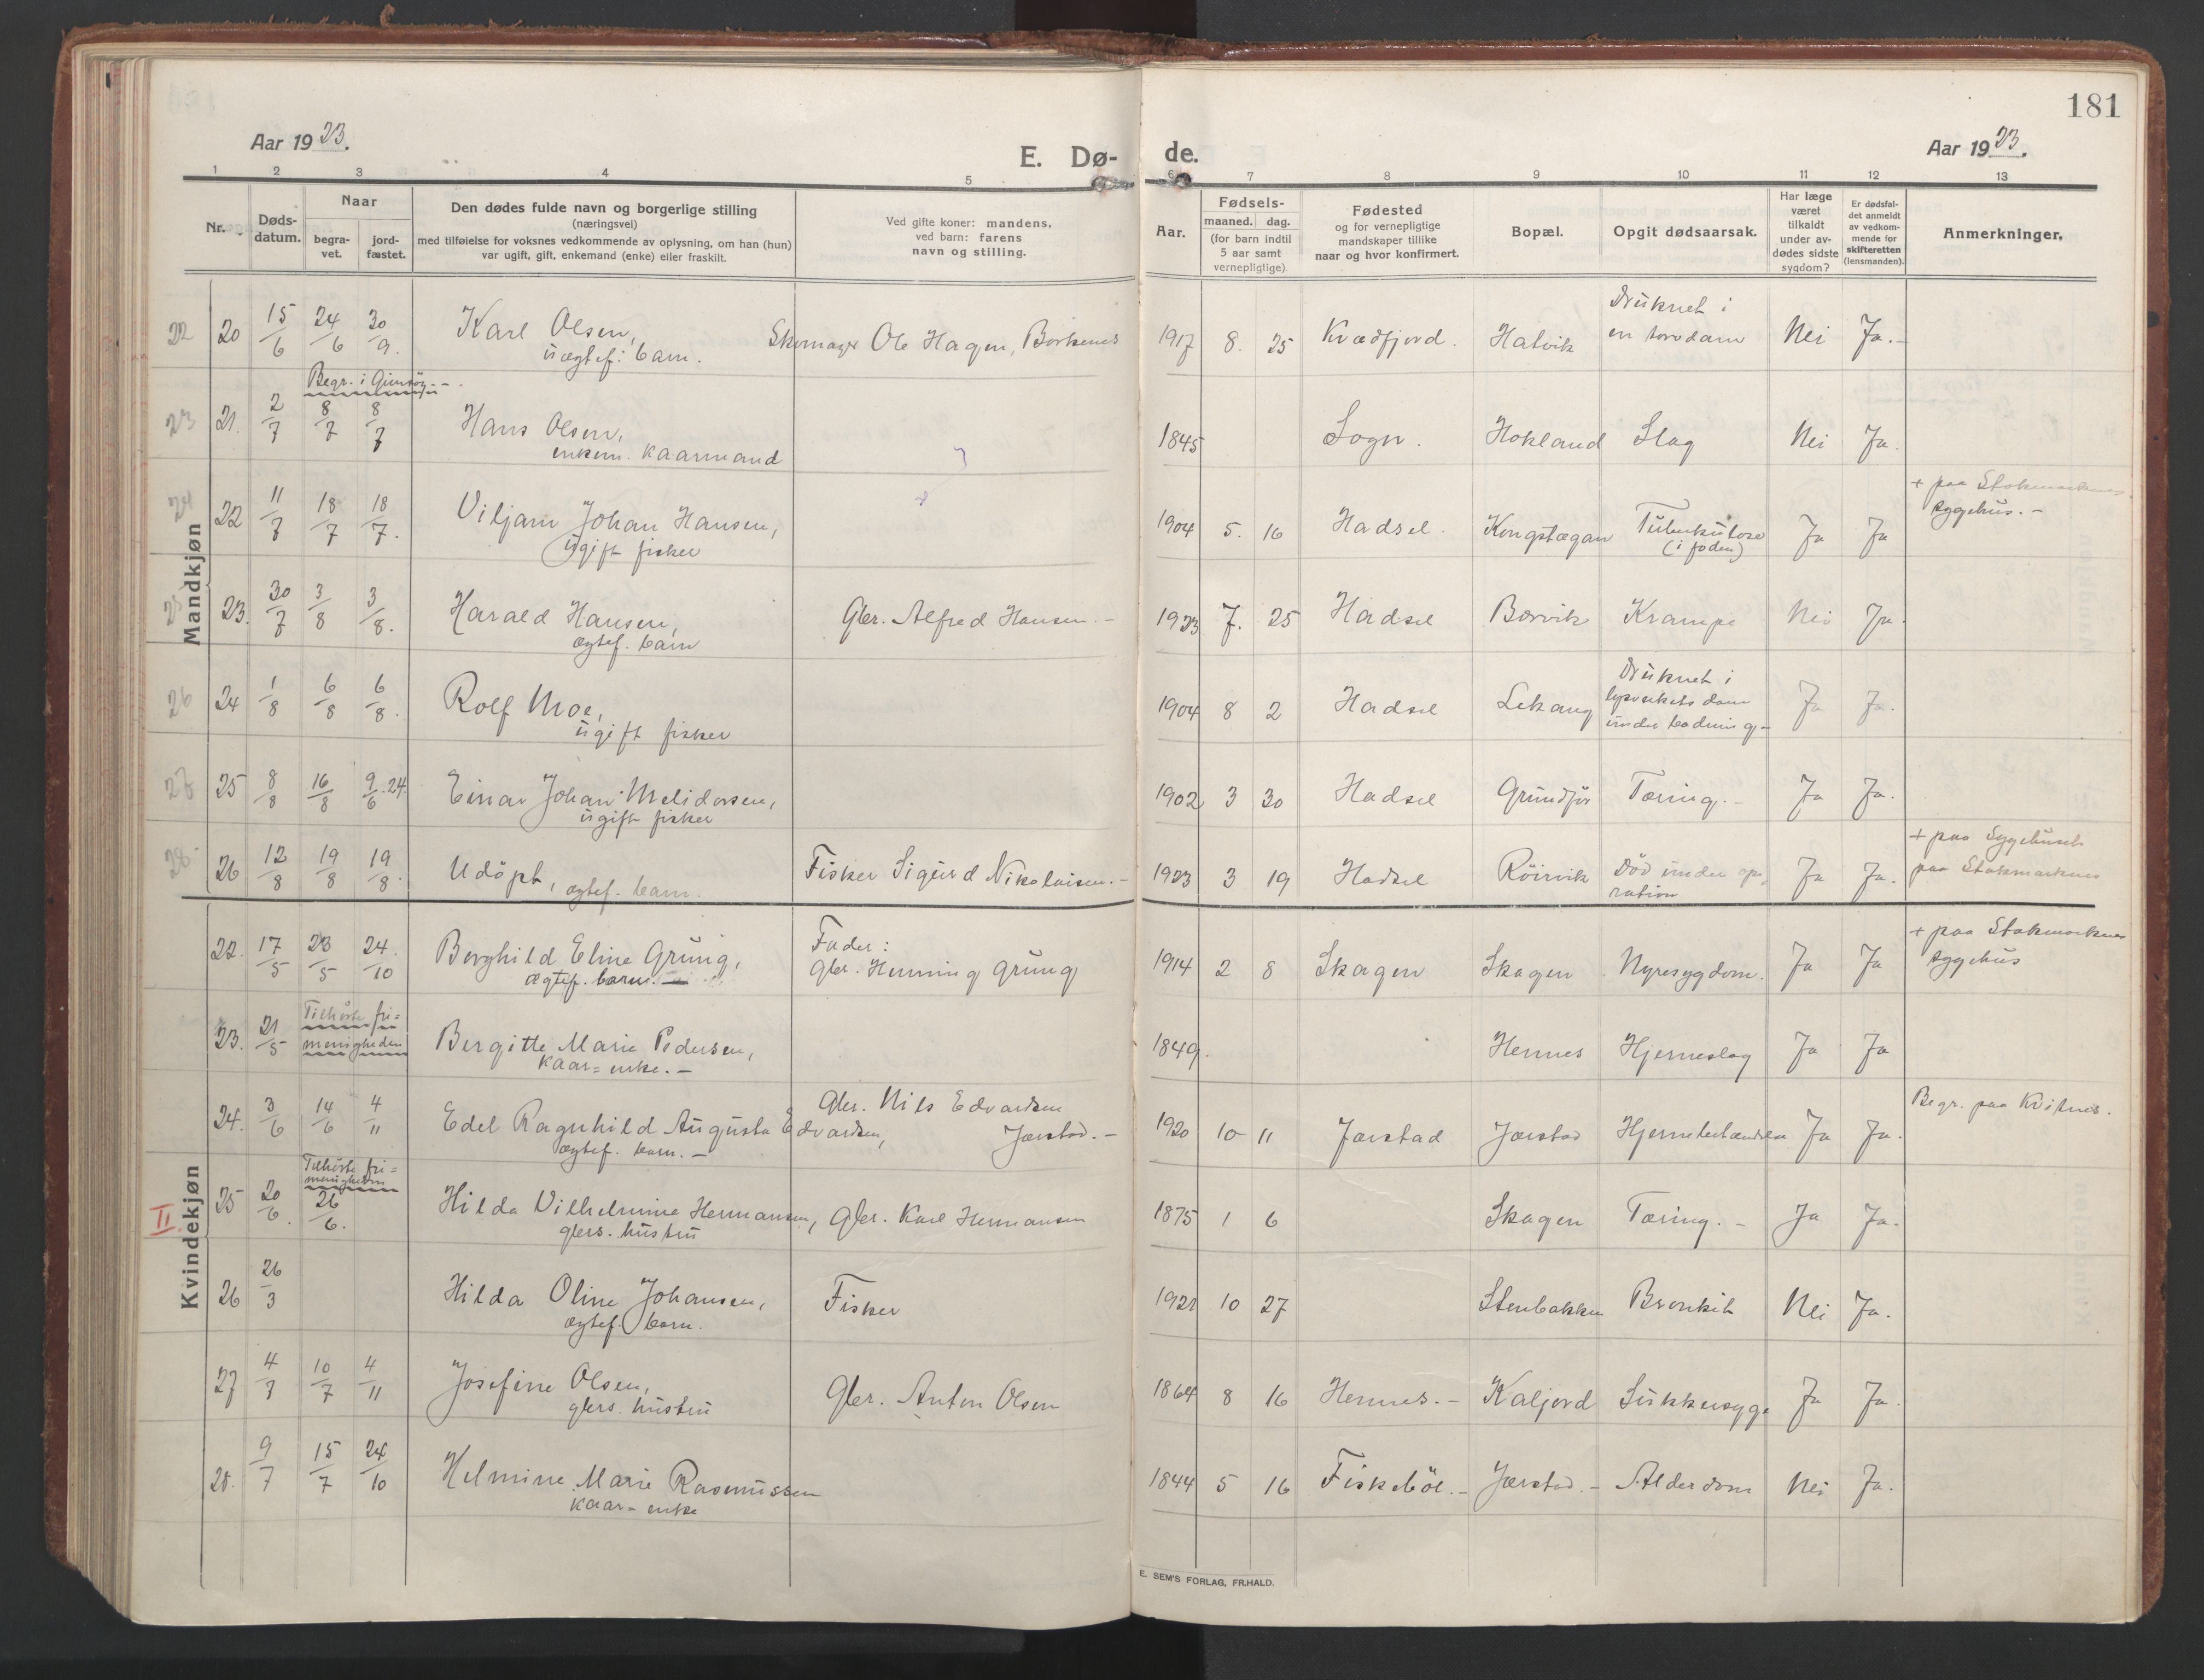 181
Aar 1923.
E. Dø- de.
Aar 1923.
1 2 3 4 5 6 7 8 9 10 11 12 13
Nr.
Døds-
datum.
Naar
begra-
vet.
jord-
fæstet.
Den dødes fulde navn og borgerlige stilling
(næringsvei)
med tilføielse for voksnes vedkommende av oplysning, om han (hun)
var ugift, gift, enkemand (enke) eller fraskilt.
Ved gifte koner: mandens,
ved barn: farens
navn og stilling.
Aar.
Fødsels-
maaned. dag.
(for barn indtil
5 aar samt
vernepligtige)
Fødested
og for vernepligtige
mandskaper tillike
naar og hvor konfirmert.
Bopæl.
Opgit dødsaarsak.
Har læge
været
tilkaldt
under av-
dødes sidste
sygdom?
Er dødsfal-
det anmeldt
av vedkom-
mende for
skifteretten
(lensmanden).
Anmerkninger.
Mandkjøn
22 20 15/6 24/6 30/9. Karl Olsen, Skomager Ole Hagen, Borkenes 1917 8. 25 Kvædfjord. Hatvik Druknet i
uægtef. barn. en torvdam Nei Ja.-
Begr. i Gimsøy.-
23 21. 2/7 8/7 8/7 Hans Olsen, 1845 Sogn. Hokland Slag Nei Ja.
enkem. kaarmand
24 22 11/7 18/7 18/7. Viljam Johan Hansen, 1904 5. 16 Hadsel. Tuberkulose Ja Ja + paa Stokmarknes
ugift fisker (i foden) sygehus.-
25 23. 30/7 3/8 3/8. Harald Hansen, Gbr. Alfred Hansen.- 1923 7. 25 Hadsel Borvik Krampe Nei Ja.
ægtef. barn
26 24 1/8 6/8 6/8. Rolf Moe, 1904 8 2 Hadsel Lekang Druknet i
ugift fisker dam
under badning.- Ja Ja.
27 25 8/8 16/8 9/6.24. Einar Johan Melidorsen, 1902 3 30 Hadsel Grundfør Tæring.- Ja Ja.
ugift fisker
28. 26 12/8 19/8 19/8. Udøpt, ægtef. barn. Fisker Sigurd Nikolaisen.- 1923 3 19 Hadsel Røirvik Død under ope-
ration Ja Ja. + paa Sygehuset
paa Stokmarknes
Kvindekjøn
22. 17/5 23/5 24/10 Borghild Eline Grung, Fader:
ægtef. barn.- Gbr. Henning Grung 1914 2 8 Skagen Skagen Nyresygdom. Ja Ja + paa Stokmarknes
sygehus
23. 21/5 Tilhørte fri=
menigheden Bergitte Marie Pedersen, 1849. Hennes Hjerneslag Ja Ja
kaar=enke.-
24. 3/6 14/6 4/11 Edel Ragnhild Augusta Edvardsen, Gbr. Nils Edvardsen
ægtef. barn.- Jorstad.- 1920 10 11 Jorstad Jorstad Ja Ja. Begr. paa Kvitnes.
II 25 20/6. Tilhørte fri=
menigheden
26/6. Hilda Vilhelmine Hermansen, Gbr. Karl Hermansen 1875 1 6 Skagen Tæring.- Ja Ja.
gbrs. hustru
26 26/3 Hilda Oline Johansen, Fisker 10 27 Stenbakken Bronkit Nei Ja.
ægtef. barn.
27 4/7 10/7 4/11 Josefine Olsen, Gbr. Anton Olsen 1864 8 16 Hennes.- Kaljord Sukkersyge Ja Ja.
gbrs. hustru
28. 9/7 15/7 24/10 Helmine Marie Rasmussen 1844 5 16 Fiskebøl.- Jorstad.- Alderdom Nei Ja.
kaar=enke
E. SEM'S FORLAG, FR.HALD.